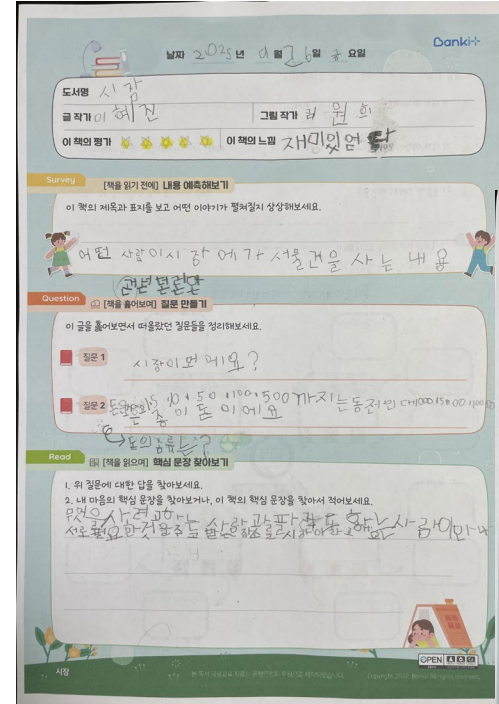 Banki+
날짜 2025년 9월 26일 금 요일
도서명 시장
글 작가 이혜진 그림 작가 원희
이 책의 평가 이 책의 느낌 재미있었다
Survey [책을 읽기 전에] 내용 예측해보기
이 책의 제목과 표지를 보고 어떤 이야기가 펼쳐질지 상상해보세요.
어떤 사람이 시장에 가서 물건을 사는 내용
Question [책을 훑어보며] 질문 만들기
이 글을 훑어보면서 떠올랐던 질문들을 정리해보세요.
질문 1 시장이 뭐에요?
질문 2 10.50.100.500 까지는 동전인데
돈의 종류는?
Read [책을 읽으며] 핵심 문장 찾아보기
1. 위 질문에 대한 답을 찾아보세요.
2. 내 마음의 핵심 문장을 찾아보거나, 이 책의 핵심 문장을 찾아서 적어보세요.
무엇을 사려고 하는 사람과 팔려고 하는 사람이 만나
서로 필요한 것을 주는
OPEN
시장
본 독서 금융교육 자료는 공행민인의 후원으로 제작되었습니다. Copyright 2022. Banki All rights reserved.